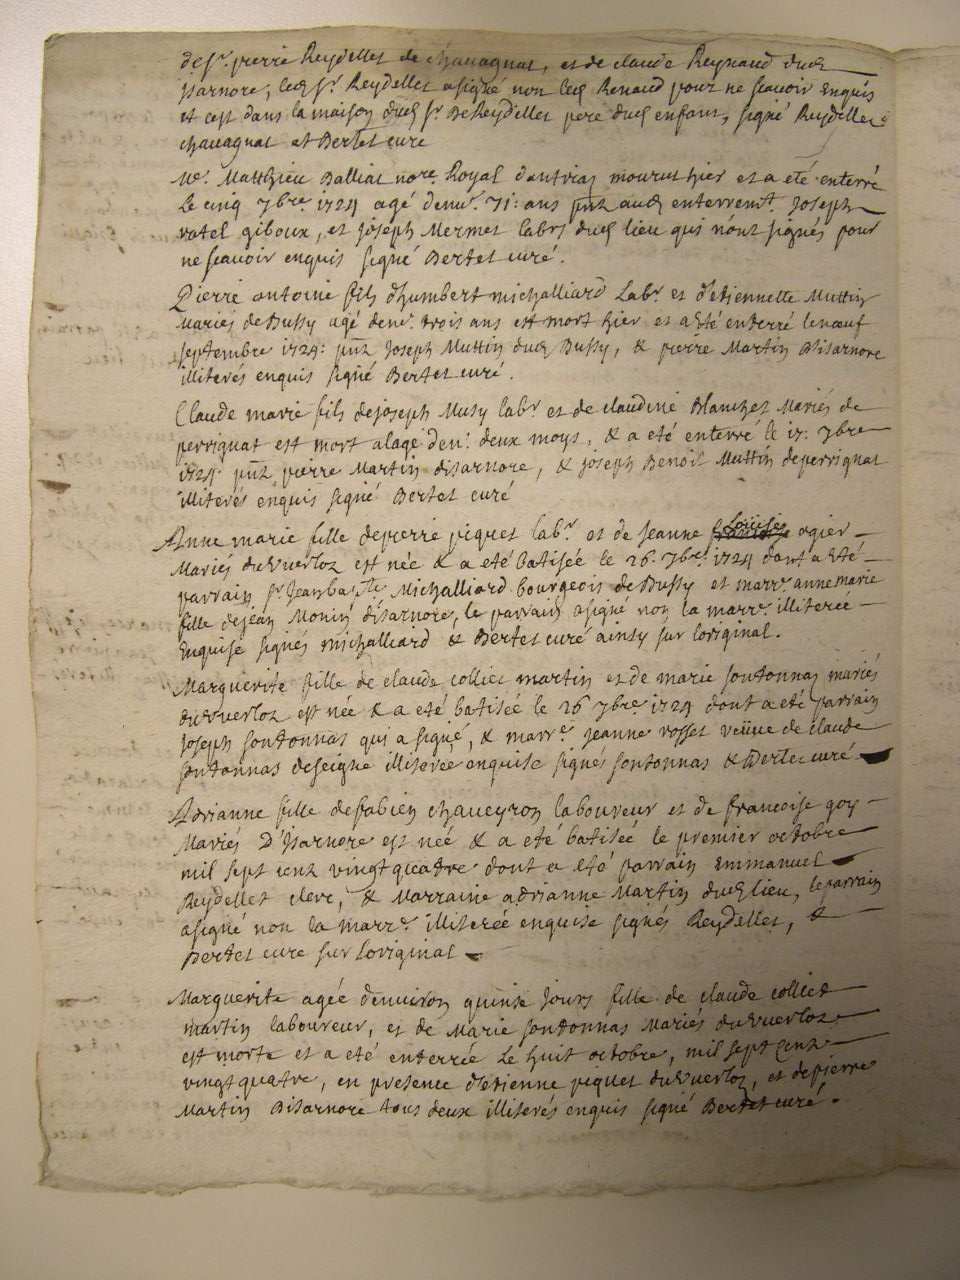 de Sr. pierre Reydellet de chavagnat, et de claude Reynaud dud
Isarnore, led Sr. Reydellet a signé non led Renaud pour ne scavoir enquis
et cest dans la maison dud Sr. De Reydellet pere dud enfant, signé Reydellet
chavagnat et Bertet cure
Me. Matthieu Balliat nore. Royal dautriaz mourut hier et a eté enterré
le cinq 7bre. 1724 agé denvn. 71: ans pnt aud enterremt. Joseph
ratel giboux, et joseph Mermet labrs dud lieu qui nont signés pour
ne scavoir enquis signé Bertet curé.
Pierre antoine fils dhumbert michalliard Labr. et d'etiennette Muttin
Mariés de Bussy agé denvn. trois ans est mort hier et a eté enterré le nœuf
septembre 1724: pnt Joseph Muttin dud Bussy, & pierre Martin Disarnore
illiterés enquis signé Bertet curé.
Claude marie fils de joseph Musy labr et de claudine Blanchet Mariés de
perrignat est mort a lage denn. deux moys, & a eté enterré le 17: 7bre
1724 pnt pierre Martin disarnore, & joseph Benoit Muttin de perrignat
illiterés enquis signé Bertet curé
Anne marie fille de pierre piquet labr. et de Jeanne Loüise ogier
Mariés du Vuerloz est née & a eté batisée le 26. 7bre. 1724 dont a eté
parrain Sr. Jean bati.te Michalliard bourgeois de Bussy et marr.e anne marie
fille de jean Monin disarnore, le parrain a signé non la marr.e illiterée
Enquise signés michalliard & Bertet curé ainsy sur loriginal.
Marguerite fille de claude colliet martin et de marie sontonnas mariés
du Vuerloz est née & a eté batisée le 26 7bre. 1724 dont a eté parrain
Joseph sontonnas qui a signé, & marr.e Jeanne rosset veüve de claude
sontonnas de seigne illiterée enquise signés sontonnas & Bertet curé
Adrianne fille de fabien chaveyron laboureur et de francoise goy
Mariés D'Isarnore est née & a eté batisée le premier octobre
mil sept cent vingt quatre dont a eté parrain Emmanuel
Reydellet clerc, & Marraine adrianne Martin dud lieu, le parrain
a signé non la marr.e illiterée enquise signés Reydellet, &
Bertet cure sur loriginal
Marguerite agée denviron quinse jours fille de claude colliet
martin laboureur, et de Marie sontonnas Mariés du Vuerloz
est morte et a eté enterrée le huit octobre, mil sept cent
vingt quatre, en presence d'etienne piquet du Vuerloz, et de pierre
Martin Disarnore tous deux illiterés enquis signé Bertet curé.